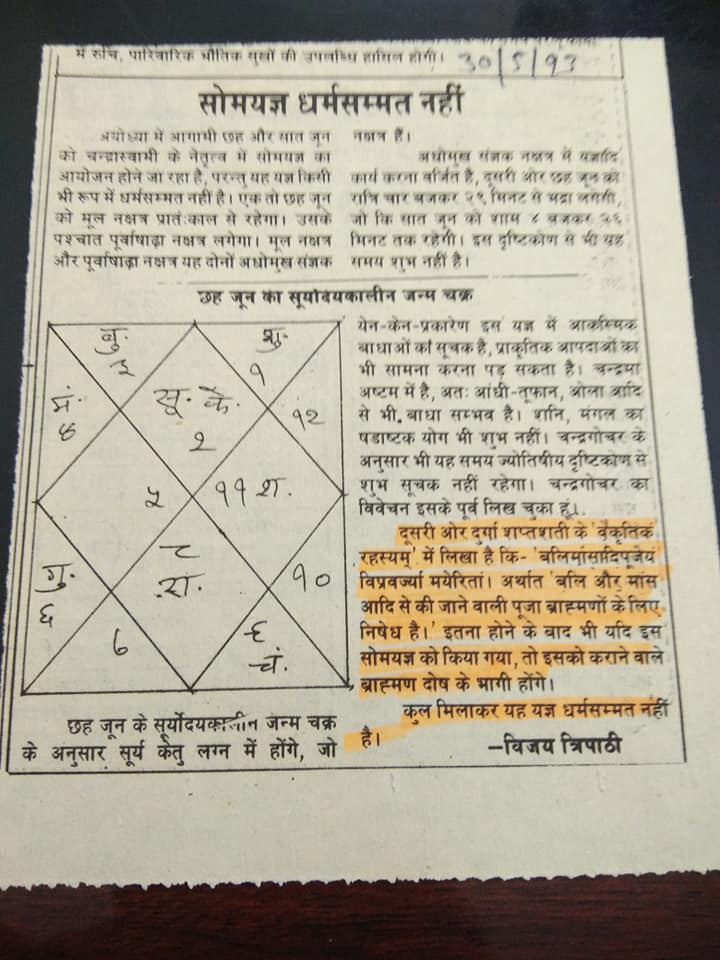 में रुचि, पारिवारिक भौतिक सुखों की उपलब्धि हासिल होगी।
30/5/93
सोमयज्ञ धर्मसम्मत नहीं
अयोध्या में आगामी छह और सात जून
को चन्द्रास्वामी के नेतृत्व में सोमयज्ञ का
आयोजन होने जा रहा है, परन्तु यह यज्ञ किसी
भी रूप में धर्मसम्मत नहीं है। एक तो छह जून
को मूल नक्षत्र प्रातःकाल से रहेगा। उसके
पश्चात पूर्वाषाढ़ा नक्षत्र लगेगा। मूल नक्षत्र
और पूर्वाषाढ़ा नक्षत्र यह दोनों अधोमुख संज्ञक
नक्षत्र हैं।
अधोमुख संज्ञक नक्षत्र में यज्ञादि
कार्य करना वर्जित है, दूसरी ओर छह जून को
रात्रि चार बजकर २९ मिनट से भद्रा लगेगी,
जो कि सात जून को शाम ४ बजकर २६
मिनट तक रहेगी। इस दृष्टिकोण से भी यह
समय शुभ नहीं है।
छह जून का सूर्योदयकालीन जन्म चक्र
बु.
३
शु.
१
मं.
४
सू. के.
२
१२
५
११ श.
८
रा.
गु.
६
१०
७
९
चं.
छह जून के सूर्योदयकालीन जन्म चक्र
के अनुसार सूर्य केतु लग्न में होंगे, जो
येन-केन-प्रकारेण इस यज्ञ में आकस्मिक
बाधाओं का सूचक है, प्राकृतिक आपदाओं का
भी सामना करना पड़ सकता है। चन्द्रमा
अष्टम में है, अतः आंधी-तूफान, ओला आदि
से भी बाधा सम्भव है। शनि, मंगल का
षडाष्टक योग भी शुभ नहीं। चन्द्रगोचर के
अनुसार भी यह समय ज्योतिषीय दृष्टिकोण से
शुभ सूचक नहीं रहेगा। चन्द्रगोचर का
विवेचन इसके पूर्व लिख चुका हूं।
दूसरी ओर दुर्गा शप्तशती के 'वैकृतिकं
रहस्यम्' में लिखा है कि- 'बलिमांसादिपूजेयं
विप्रवर्ज्या मयेरिता। अर्थात 'बलि और मांस
आदि से की जाने वाली पूजा ब्राह्मणों के लिए
निषेध है।' इतना होने के बाद भी यदि इस
सोमयज्ञ को किया गया, तो इसको कराने वाले
ब्राह्मण दोष के भागी होंगे।
कुल मिलाकर यह यज्ञ धर्मसम्मत नहीं
है।
-विजय त्रिपाठी